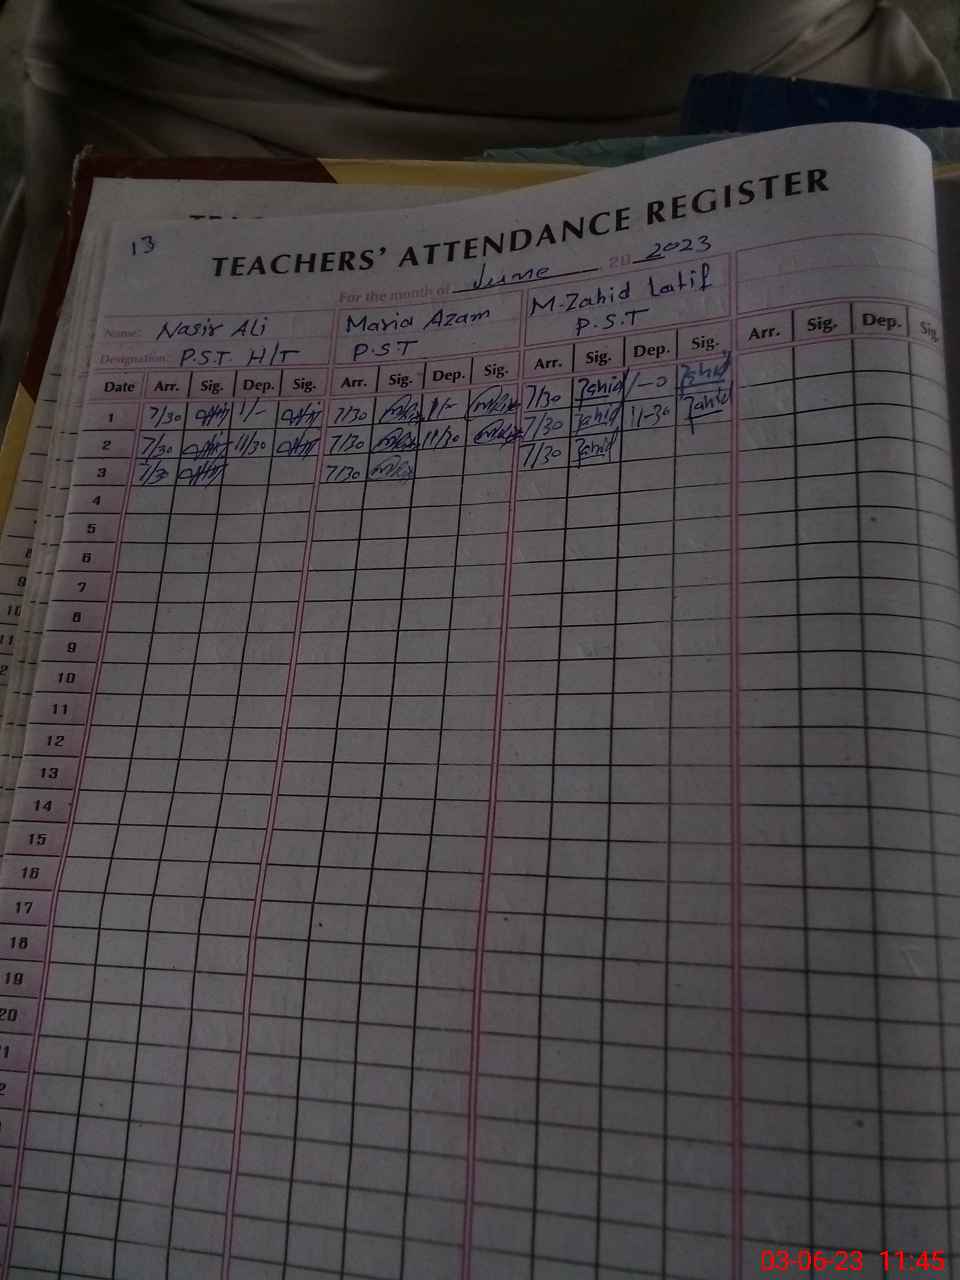 13
TEACHERS' ATTENDANCE REGISTER
For the month of June 20 2023
Name: Nasir Ali Maria Azam M. Zahid Latif
Designation: P.S.T H/T P.S.T P.S.T
Date Arr. Sig. Dep. Sig. Arr. Sig. Dep. Sig. Arr. Sig. Dep. Sig. Arr. Sig. Dep. Sig.
1 7/30 1/- 7/30 1/- 7/30 Zahid 1-0 Zahid
2 7/30 11/30 7/30 11/30 7/30 Zahid 11-30 Zahid
3 7/30 7/30 7/30 Zahid
4
5
6
7
8
9
10
11
12
13
14
15
16
17
18
19
20
03-06-23 11:45